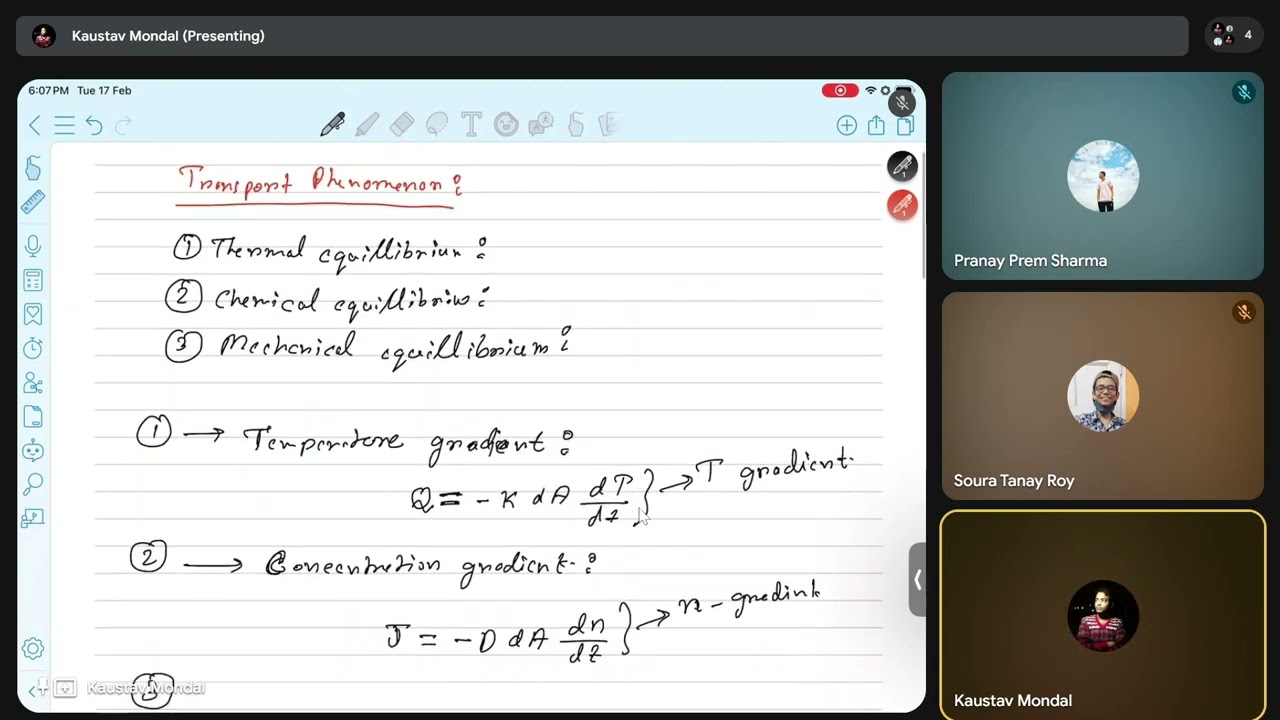 Kaustav Mondal (Presenting)
4
6:07 PM Tue 17 Feb
Transport Phenomenon :
① Thermal equillibrium :
② Chemical equillibrium :
③ Mechanical equillibrium :
① → Temperature gradient :
Q = - K dA dT/dz } → T gradient.
② → Concentration gradient :
J = - D dA dn/dz } → n - gradient
③
Kaustav Mondal
Pranay Prem Sharma
Soura Tanay Roy
Kaustav Mondal